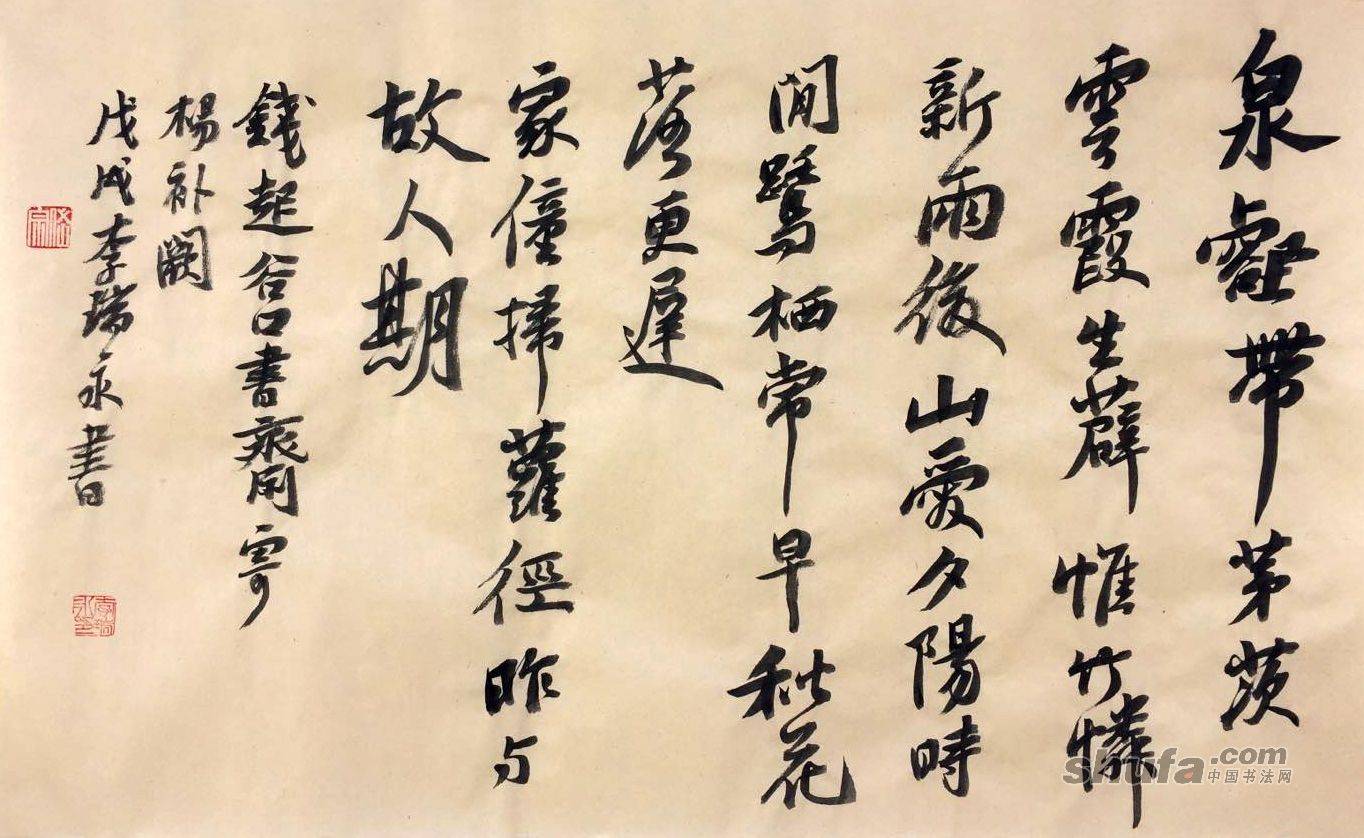 泉壑帶茅茨
雲霞生薜惟竹憐
新雨後山愛夕陽時
閒鷺栖常早秋花
落更遲
家僮掃蘿徑昨与
故人期
錢起谷口書齋寄
楊补闕
戊戌李瑞永書
shufa.com
中国书法网